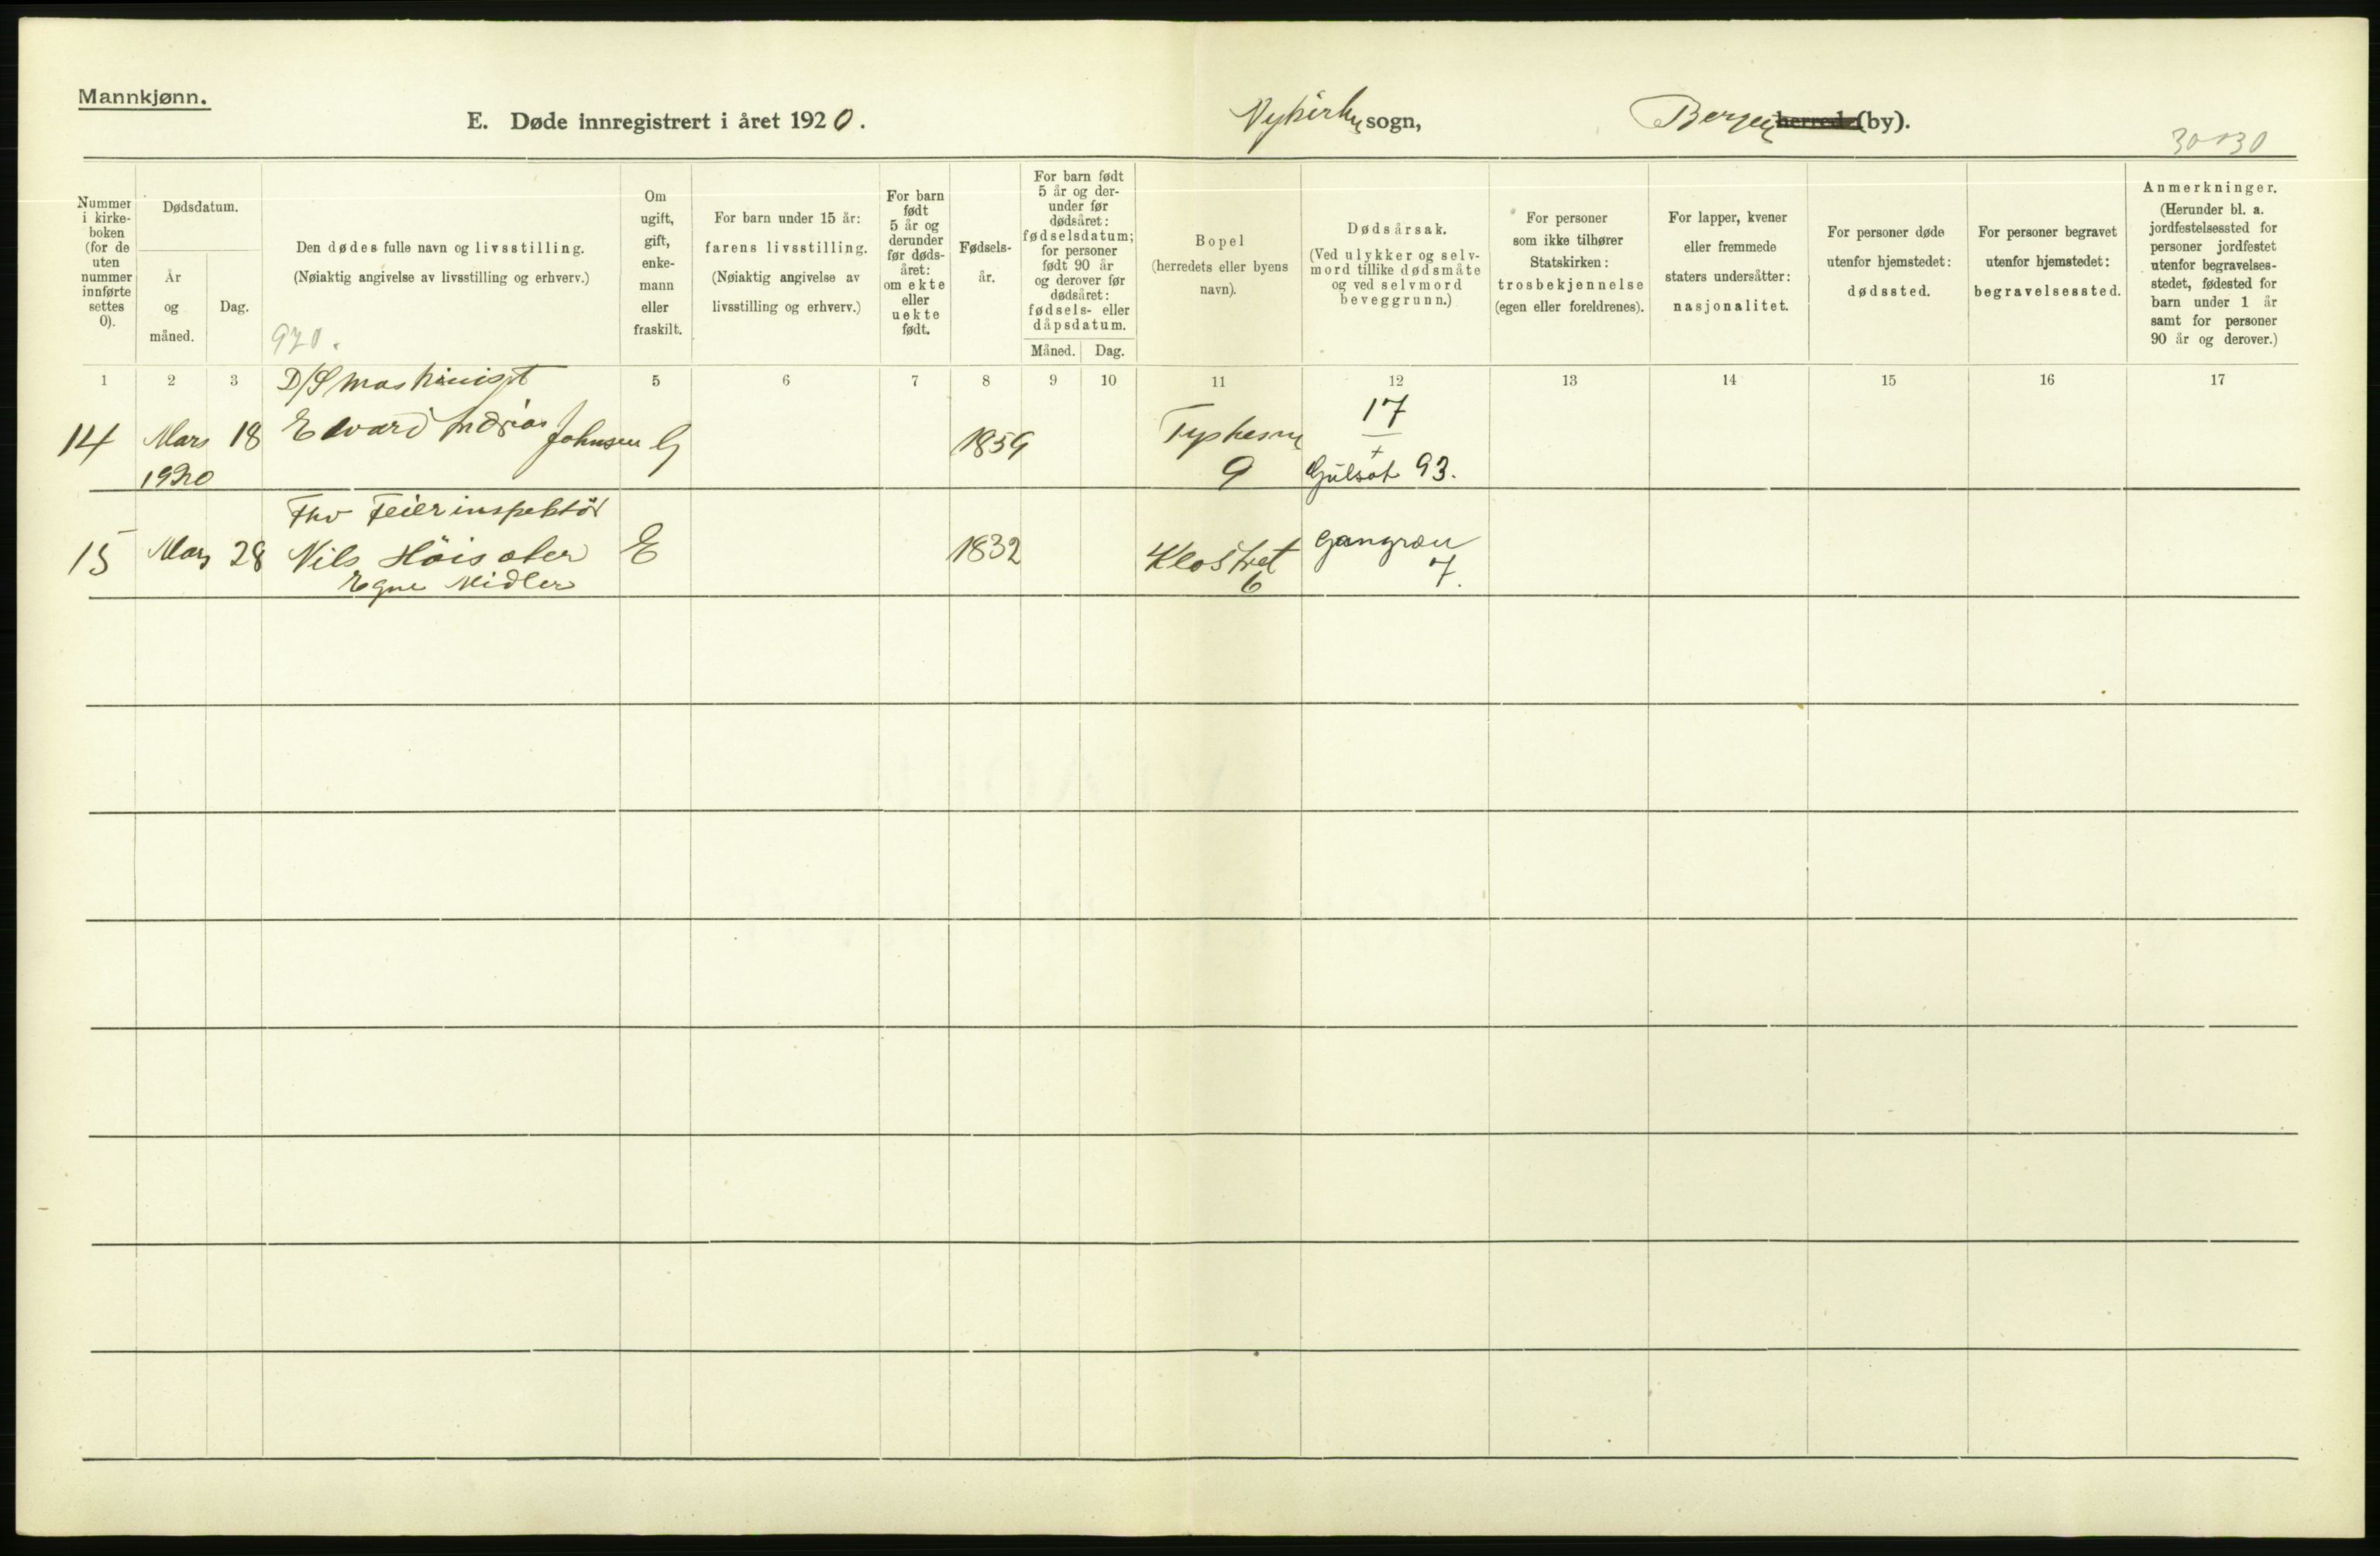 Mannkjønn.
E. Døde innregistrert i året 1920. Nykirken sogn, Bergen herred (by).
30 30
Nummer i kirke- boken (for de uten nummer innførte settes 0).
Dødsdatum.
År og måned.
Dag.
Den dødes fulle navn og livsstilling.
(Nøiaktig angivelse av livsstilling og erhverv.)
920.
Om ugift, gift, enke- mann eller fraskilt.
For barn under 15 år:
farens livsstilling.
(Nøiaktig angivelse av
livsstilling og erhverv.)
For barn født 5 år og derunder før døds- året: om ekte eller uekte født.
Fødsels- år.
For barn født 5 år og der- under før dødsåret: fødselsdatum; for personer født 90 år og derover før dødsåret: fødsels- eller dåpsdatum.
Måned. Dag.
Bopel
(herredets eller byens
navn).
Dødsårsak.
(Ved ulykker og selv-
mord tillike dødsmåte
og ved selvmord
beveggrunn.)
For personer
som ikke tilhører
Statskirken:
trosbekjennelse
(egen eller foreldrenes).
For lapper, kvener
eller fremmede
staters undersåtter:
nasjonalitet.
For personer døde
utenfor hjemstedet:
dødssted.
For personer begravet
utenfor hjemstedet:
begravelsessted.
Anmerkninger.
(Herunder bl. a.
jordfestelsessted for
personer jordfestet
utenfor begravelses-
stedet, fødested for
barn under 1 år
samt for personer
90 år og derover.)
1 2 3 5 6 7 8 9 10 11 12 13 14 15 16 17
D/S Maskinist
14 Mars 18 Edvard Andreas Johnsen G 1859
1920
9
17
+
Gulsot 93.
Fhv Feierinspektör
15 Mars 28 Nils Höisæter E 1832 Klostret Gangræn
Egne Midler 6 7.